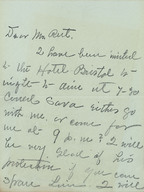 Dear Mr
I have been invited
to the Hotel Bristol to-
night to dine at 7-30
either go
with me, or come for
me at 9 p.m. I will
be very glad of his
protection if you can
spare him. I will